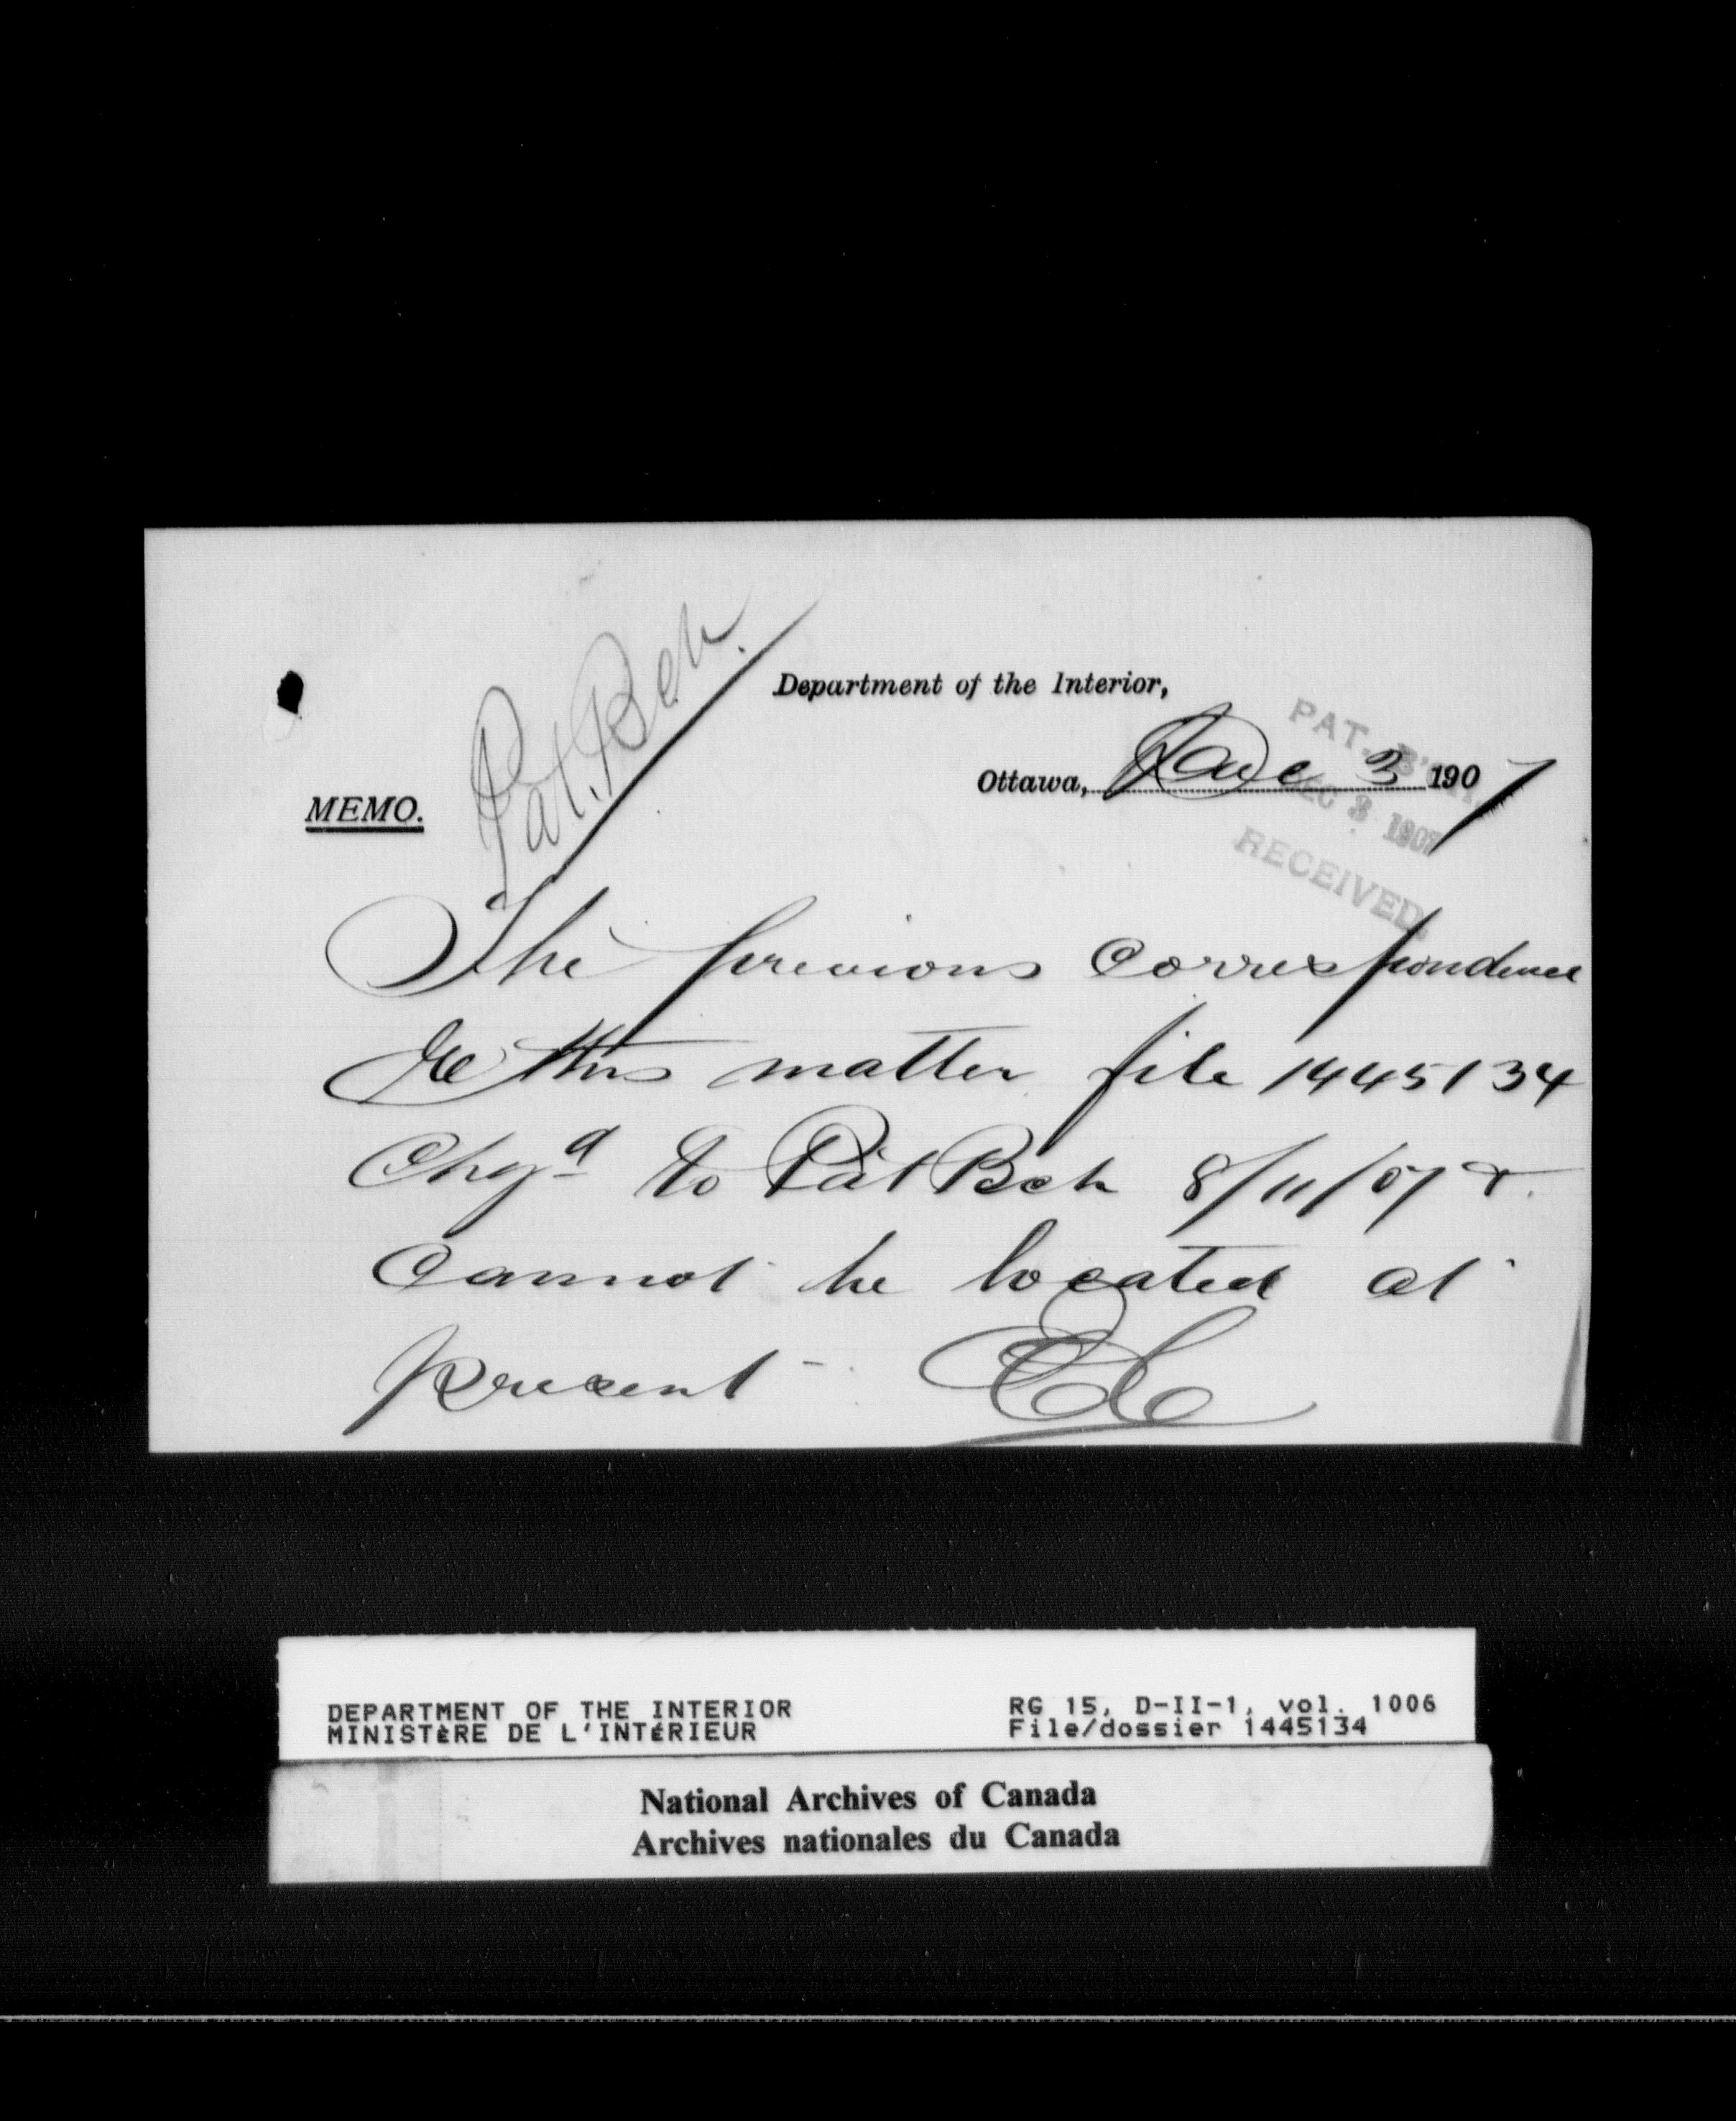 Pat. Bch.
Department of the Interior,
PAT. B'CH.
Ottawa, Dec 3 1907
DEC 3 1907
MEMO.
RECEIVED
The previous correspondence
re this matter file 1445134
Chgd to Pat Bch 8/11/07 &
cannot be located at
present -
DEPARTMENT OF THE INTERIOR
MINISTÈRE DE L'INTÉRIEUR
RG 15, D-II-1, vol. 1006
File/dossier 1445134
National Archives of Canada
Archives nationales du Canada